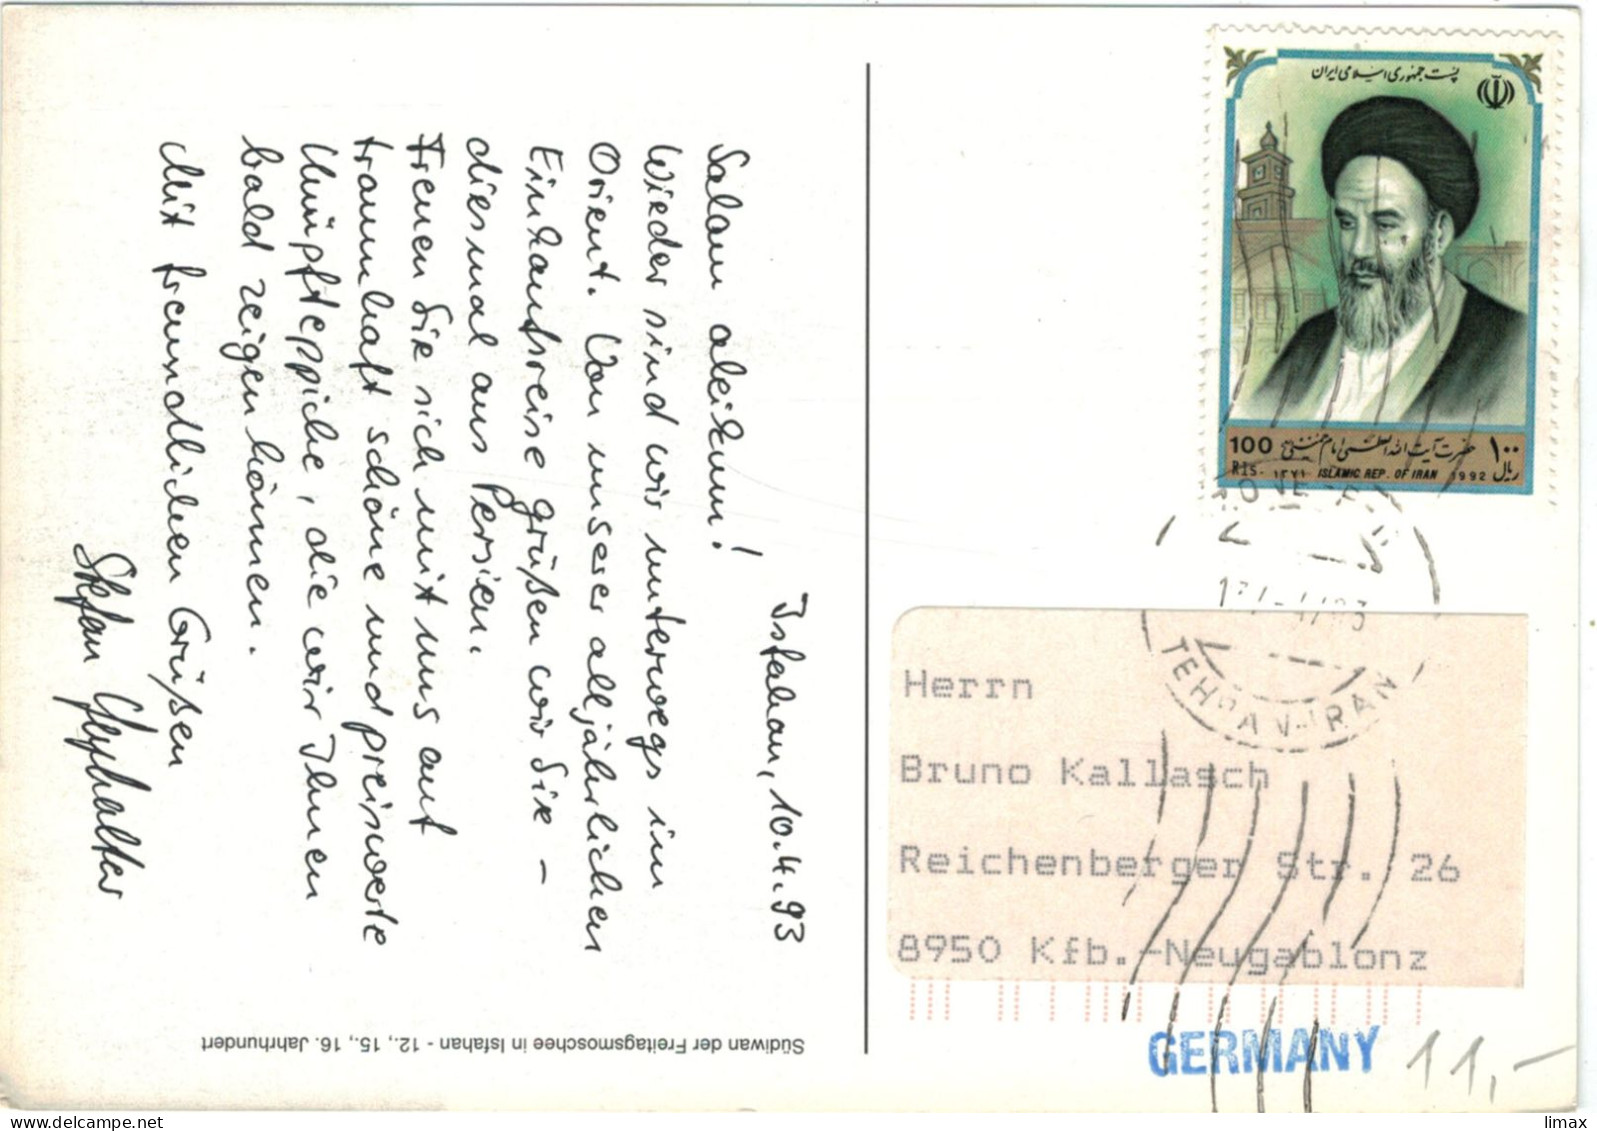 Isfahan, 10.4.93
Salam aleikum!
Wieder sind wir unterwegs im
Orient. Von unserer alljährlichen
Einkaufsreise grüßen wir Sie –
diesmal aus Persien.
Freuen Sie sich mit uns auf
traumhaft schöne und preiswerte
Knüpfteppiche, die wir Ihnen
bald zeigen können.
Mit freundlichen Grüßen
Stefan
Südiwan der Freitagsmoschee in Isfahan - 12., 15., 16. Jahrhundert
پست جمهوری اسلامی ایران
100 حضرت آیت الله العظمی امام خمینی ۱۰۰
Rls. ۱۳۷۱ ISLAMIC REP. OF IRAN 1992 ریال
TEHRAN-IRAN
Herrn
Bruno Kallasch
Reichenberger Str. 26
8950 Kfb.-Neugablonz
GERMANY
11,-
limax